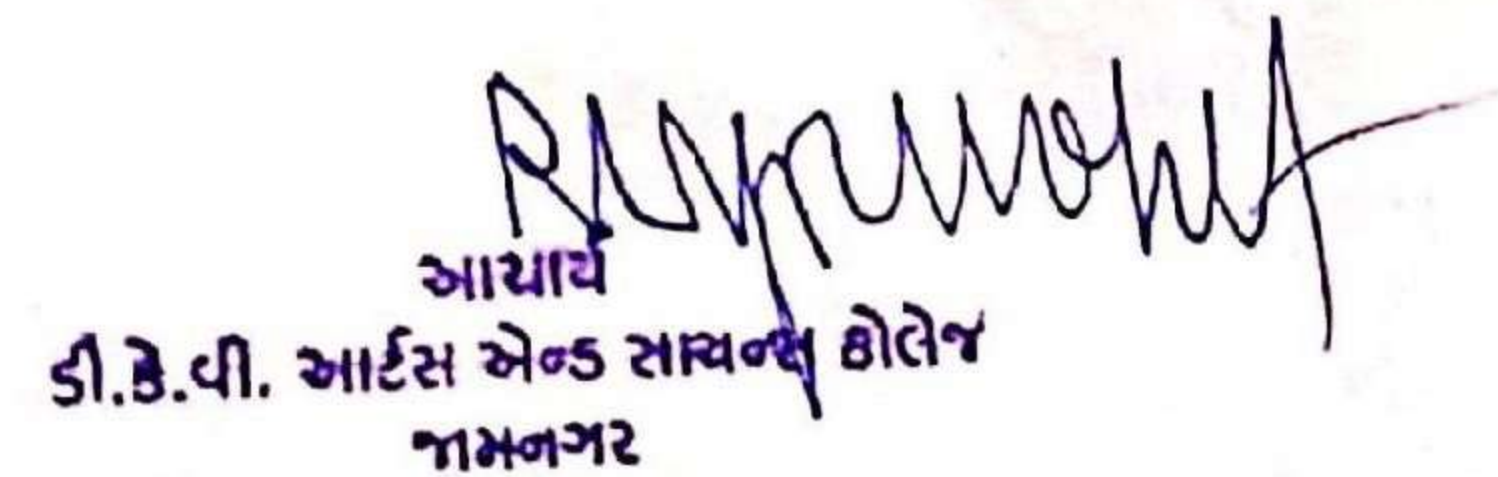 આચાર્ય
ડી.કે.વી. આર્ટસ એન્ડ સાયન્સ કોલેજ
જામનગર